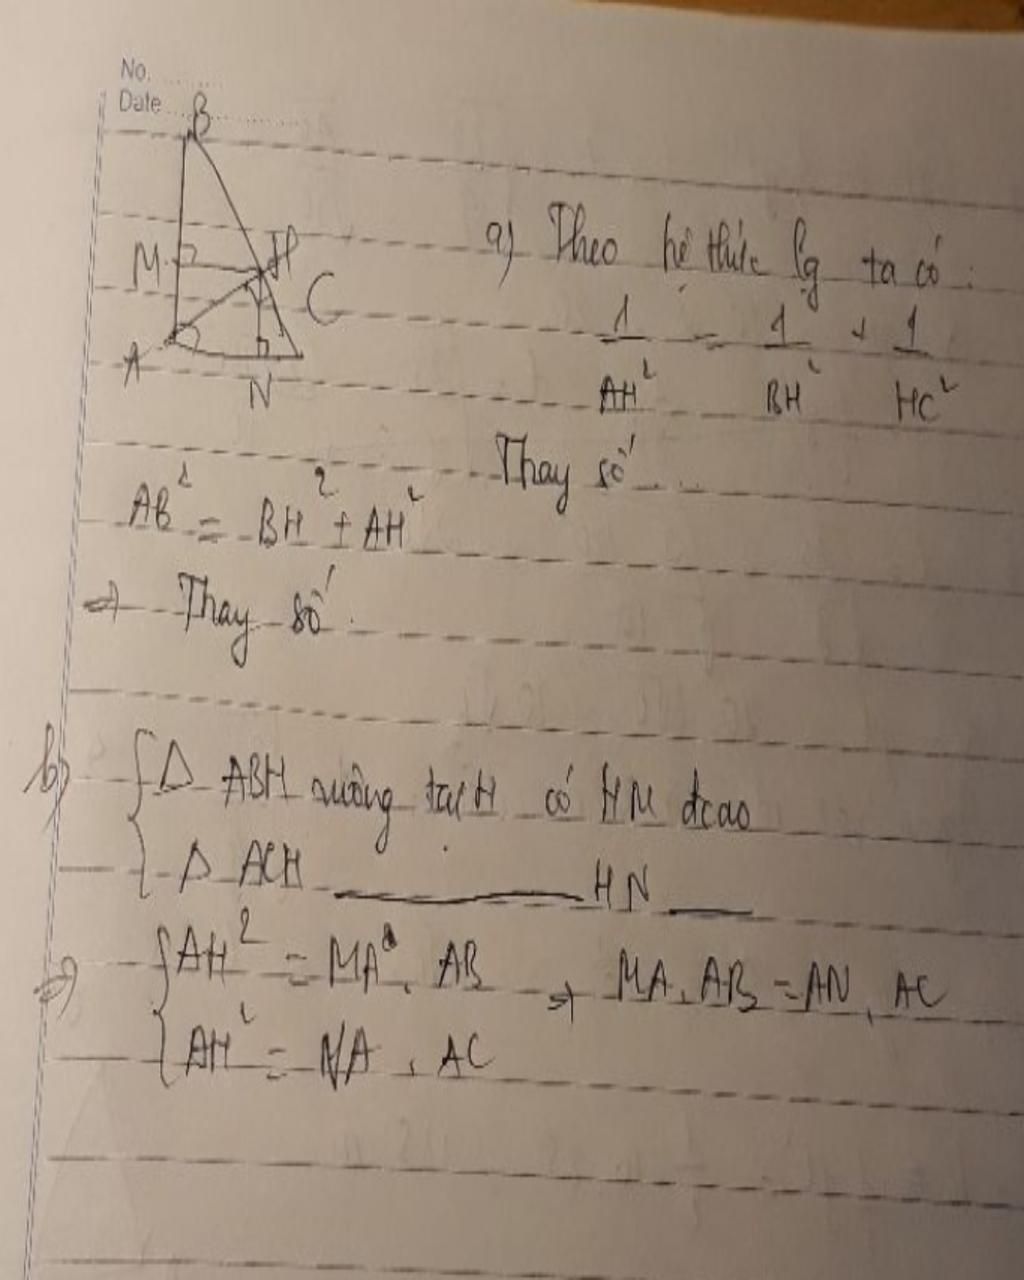 No.
Date
B
M
H
C
A
N
a) Theo hệ thức lg ta có :
1/AH² = 1/BH² + 1/HC²
Thay số
AB² = BH² + AH²
=> Thay số.
b) { Δ ABH vuông tại H có HM đcao
Δ ACH ——— HN ——
=> { AH² = MA . AB => MA . AB = AN . AC
AH² = NA . AC